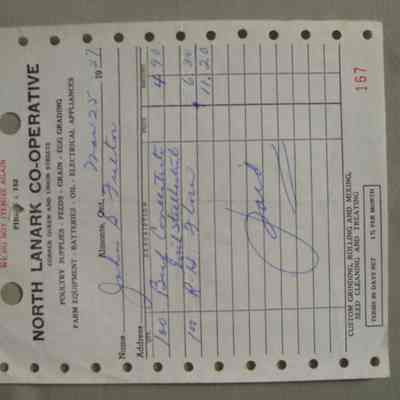 WE DO NOT ITEMIZE AGAIN
PHONE - 752
NORTH LANARK CO-OPERATIVE
CORNER QUEEN AND UNION STREETS
POULTRY SUPPLIES - FEEDS - GRAIN - EGG GRADING
FARM EQUIPMENT - BATTERIES - OIL - ELECTRICAL APPLIANCES
Almonte, Ont.
Name John Fulton
Address
QTY. DESCRIPTION PRICE AMOUNT
100 Beef Concentrate 4 90
100 6 30
$ 11.20
Paid
CUSTOM GRINDING, ROLLING AND MIXING,
SEED CLEANING AND TREATING
TERMS 30 DAYS NET 1% PER MONTH
167